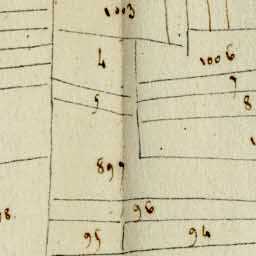 1003
4
1006
7
5
8
899
96
95
94